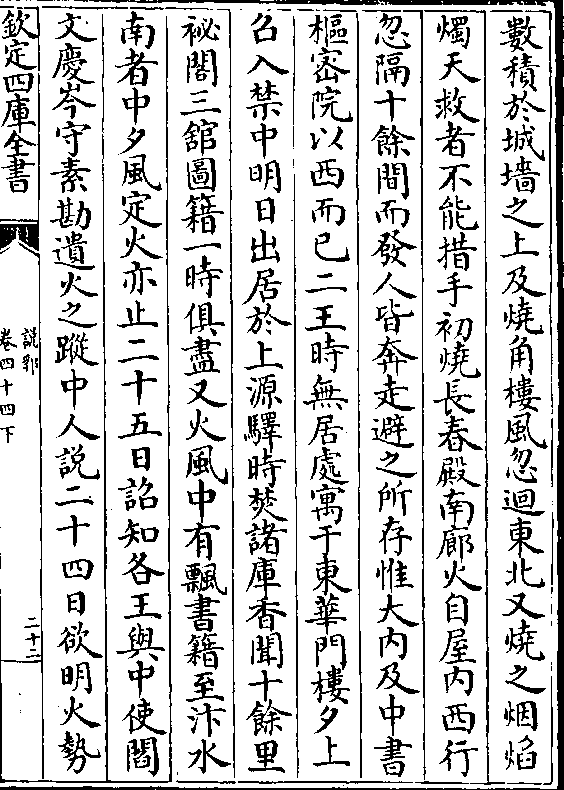 數積於城墻之上及燒角樓風忽迴東北又燒之烟焰
燭天救者不能措手初燒長春殿南廊火自屋内西行
忽隔十餘間而發人皆奔走避之所存惟大内及中書
樞宻院以西而已二王時無居處寓于東華門樓夕上
召入禁中明日出居於上源驛時焚諸庫香聞十餘里
祕閣三舘圖籍一時俱盡又火風中有飄書籍至汴水
南者中夕風定火亦止二十五日詔知各王與中使閻
文慶岑守素勘遺火之蹤中人説二十四日欲明火勢
欽定四庫全書
説郛
卷四十四下
二十二